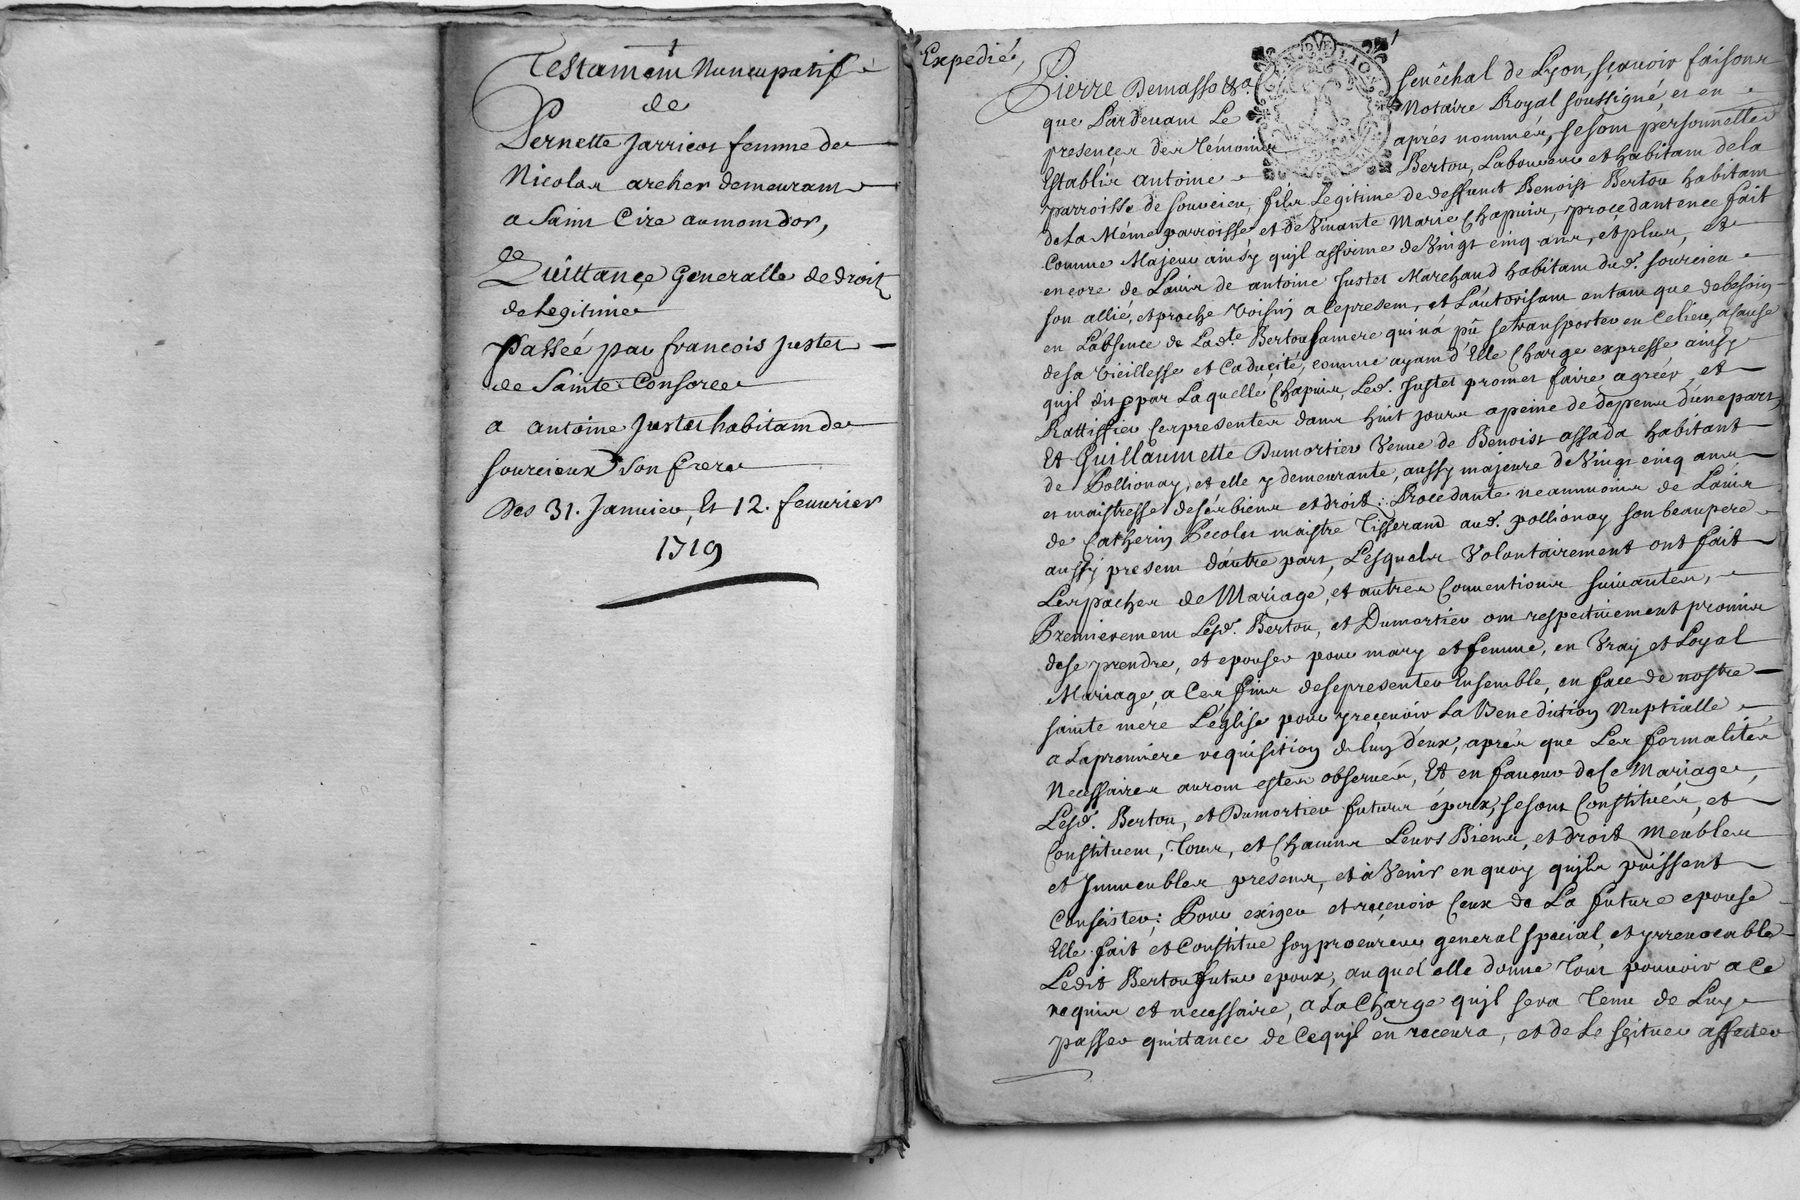 1
Testament Nuncupatif
de
Pernette Jarricot femme de
Nicolas archer demeurant
a Saint Cire au mont dor,
Quittance Generalle de droit
de Legitime
passée par francois Justet
de Sainte Consorce
a antoine Justet habitant de
sourcieux son frere
Des 31. Janvier, Et 12. feuvrier
1719
Expedié,
1
Pierre Demasso &a. senêchal de Lyon, sçavoir faisons
que Pardevant Le Notaire Royal soussigné, et en
presences des témoins aprés nommés, se sont personnellement
Establis antoine Bertou, Laboureur et habitant de la
parroisse de sourcieu, fils Legitime de deffunct Benoist Bertou habitant
de La Même parroisse et de Vivante Marie Chapuis, procedant en ce fait
comme Majeur ainsy quil affirme de Vingt cinq ans, et plus, et
encore de L'avis de antoine Justet Marchand habitant dud. sourcieu
son allié, et proche voisin a ce present, et L'autorisant en tant que de besoin
en L'absence de Lad.te Bertou sa mere qui n'a pû se transporter en ce lieu, a cause
de sa vieillesse et Caducité, comme ayant d'Elle Charge expresse ainsy
quil dit par Laquelle Chapuis, Led. Justet promet faire agréer, et
Rattiffier Ces presentes dans huit jours a peine de dépens d'une part,
Et Guillaumette Dumortier Veuve de Benoist assada habitant
de Pollionay, et elle y demeurante, aussy majeure de Vingt cinq ans
et maistresse de ses biens et droit: Procedante neanmoins de L'avis
de Catherin Pecolet maistre Tisserand aud. pollionay son beaupere
aussy present d'autre part, Lesquels Volontairement ont fait
Les paches de Mariage, et autres Conventions suivantes,
Premierement Lesd. Bertou, et Dumortier ont respectivement promis
de se prendre, et epouser pour mary et femme, en Vray et Loyal
Mariage, a Ces fins de se presenter Ensemble, en face de nostre
sainte mere L'église pour y reçevoir La Benediction Nuptialle
a La premiere requisition de l'un d'eux, aprés que Les formalités
Necessaires auront estes observées, Et en faveur de Ce Mariage,
Lesd. Bertou, et Dumortier futurs époux, se sont Constitués, et
Constituent, tous, et Chacuns Leurs Biens, et droit, Meubles
et Immeubles presens, et à Venir en quoy quils puissent
Consister: Pour exiger et reçevoir Ceux de La future epouse
Elle fait et Constitue son procureur general special, et yrrevocable
Ledit Bertou futur epoux, auquel elle donne tout pouvoir a Ce
requis et necessaire, a La Charge quil sera tenu de Luy
passer quittance de Ce quil en recevra, et de Le